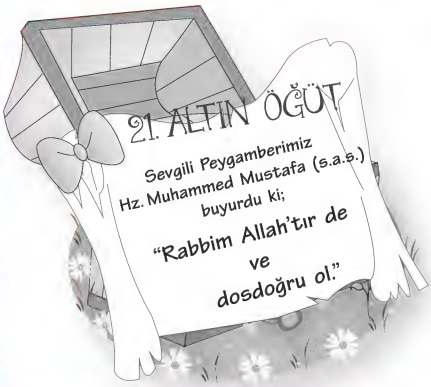 21. ALTIN ÖĞÜT
Sevgili Peygamberimiz
Hz. Muhammed Mustafa (s.a.s.)
buyurdu ki;
“Rabbim Allah’tır de
ve
dosdoğru ol.”